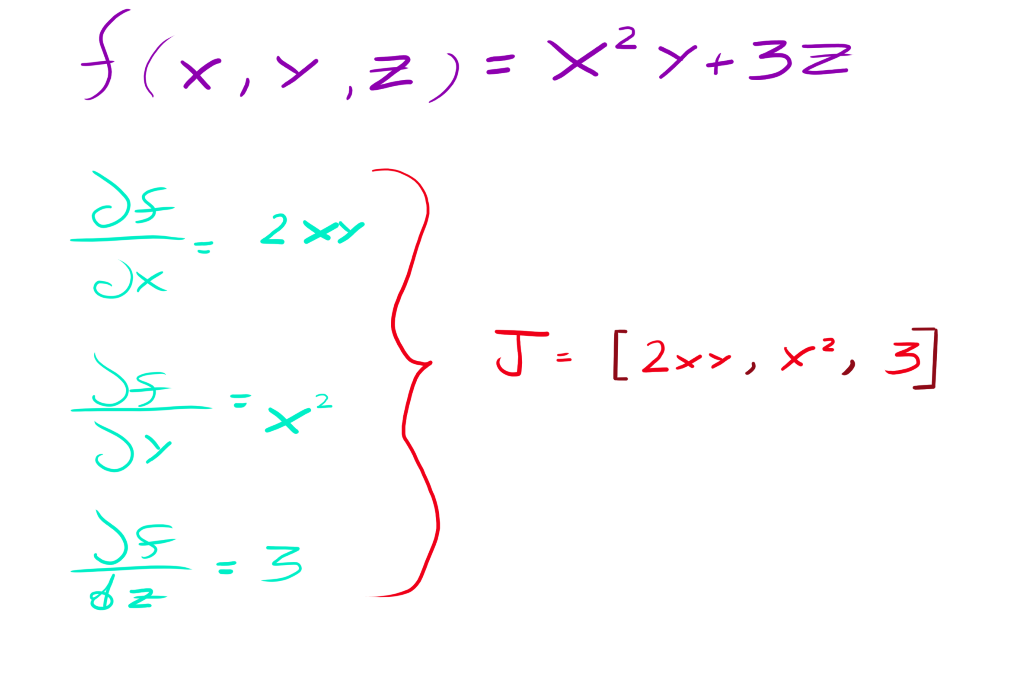 f(x, y, z) = x² y + 3z
∂f/∂x = 2xy
∂f/∂y = x²
∂f/dz = 3
J = [2xy, x², 3]